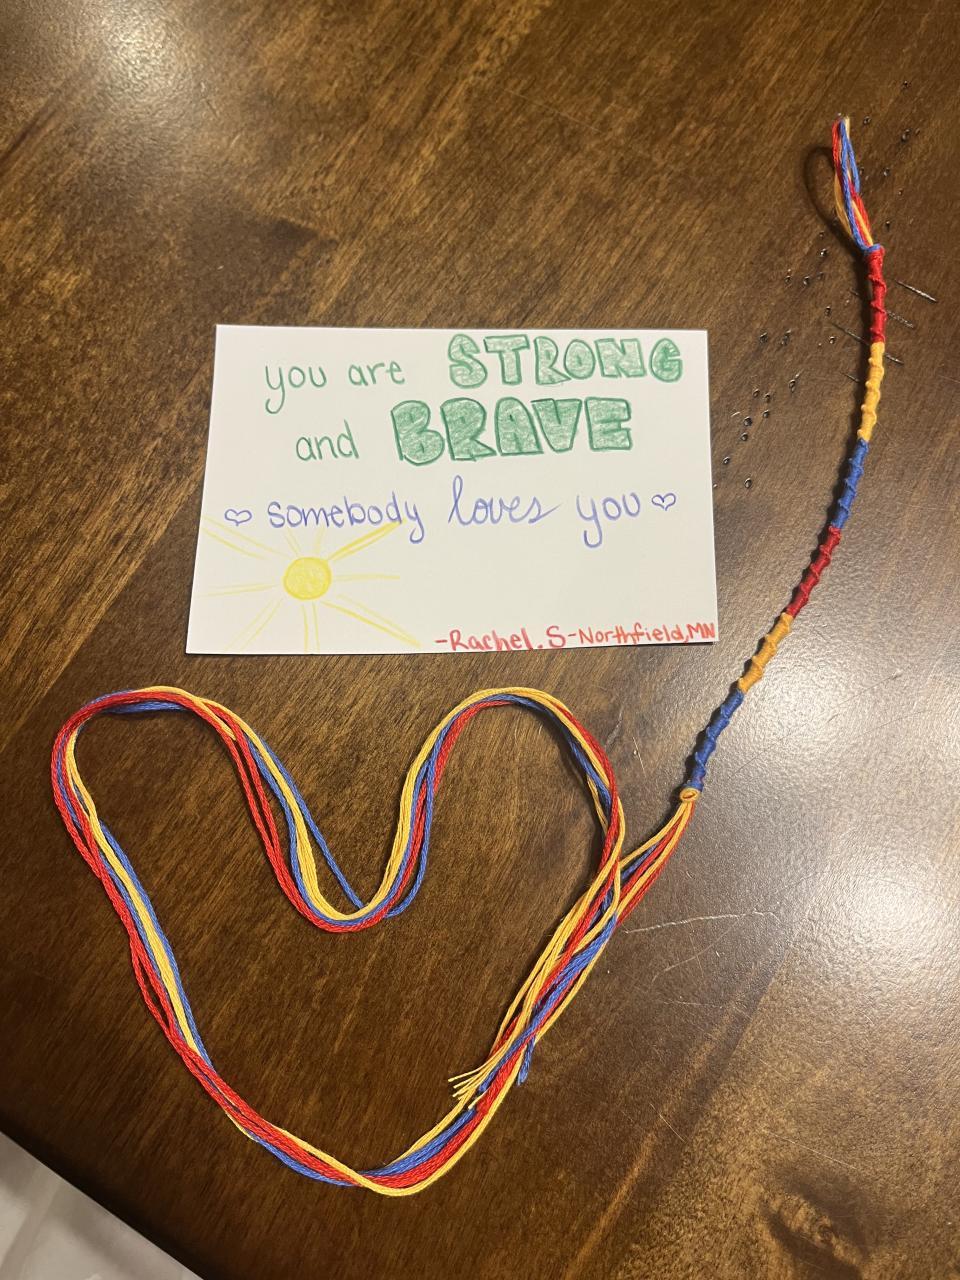 you are STRONG
and BRAVE
♡ somebody loves you ♡
-Rachel. S-Northfield,MN